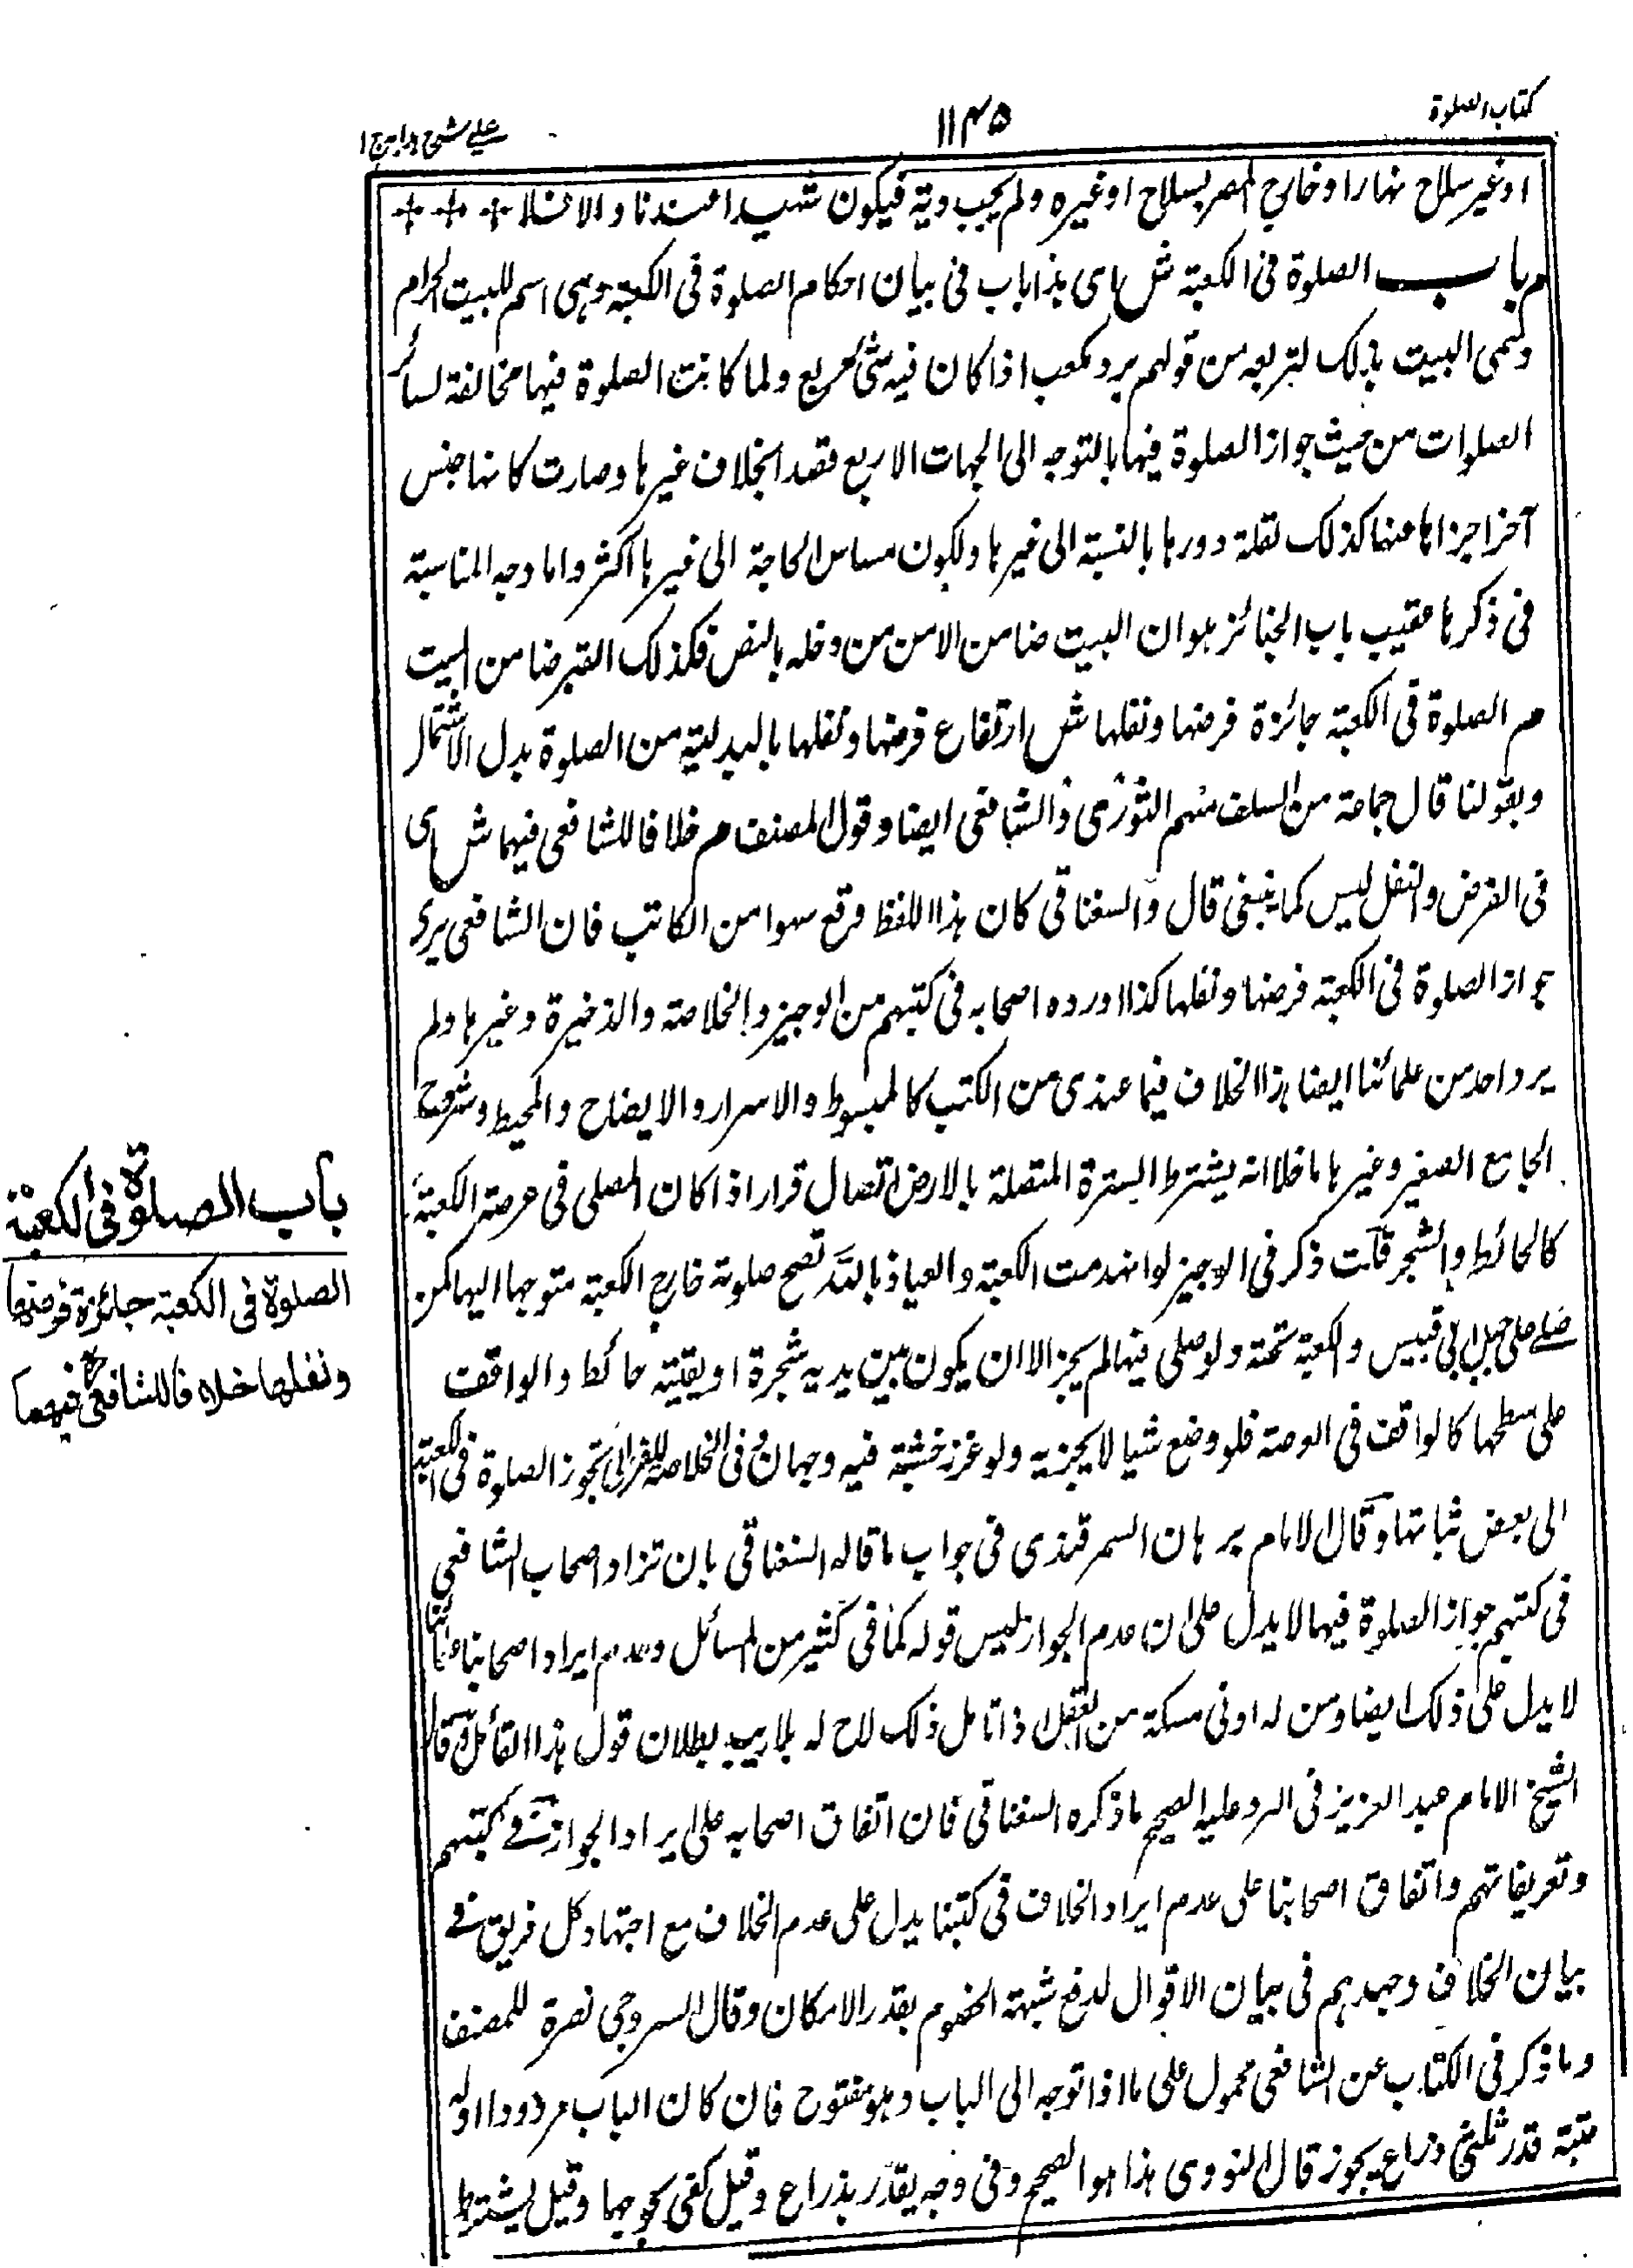 كتاب الصلوة
١١٤٥
عيني شرح هداية ج ١
او غير سلاح نهارا و خارج المصر بسلاح او غيره و لم يجب دية فيكون شهيدا عندنا و الا فلا
م باب الصلوة في الكعبة ش اى هذا باب في بيان احكام الصلوة في الكعبة وهى اسم للبيت الحرام
وسمى البيت بذلك لتربعه من قولهم برد مكعب اذا كان فيه شئ مربع ولما كانت الصلوة فيها مخالفة لسائر
الصلوات من حيث جواز الصلوة فيها بالتوجه الى الجهات الاربع قصدا بخلاف غيرها وصارت كانها جنس
آخر اخرها عنها كذلك لقلة دورها بالنسبة الى غيرها ولكون مساس الحاجة الى غيرها اكثر واما وجه المناسبة
في ذكرها عقيب باب الجنائز هو ان البيت ضامن الامن من دخله بالنص فكذلك القبر ضامن الميت
م الصلوة في الكعبة جائزة فرضها ونفلها ش ارتفاع فرضها ونفلها بالبدلية من الصلوة بدل الاشتمال
وبقولنا قال جماعة من السلف منهم الثورى والشافعى ايضا وقول المصنف م خلافا للشافعى فيهما ش اى
في الفرض والنفل ليس كما ينبغى قال والسغناقى كان هذا اللفظ وقع سهوا من الكاتب فان الشافعى يرى
جواز الصلوة في الكعبة فرضها ونفلها كذا اورده اصحابه في كتبهم من الوجيز والخلاصة والذخيرة وغيرها ولم
يرد احد من علمائنا ايضا هذا الخلاف فيما عندى من الكتب كالمبسوط والاسرار والايضاح والمحيط وشروح
الجامع الصغير وغيرها ما خلا انه يشترط السترة المتصلة بالارض اتصال قرار اذا كان المصلى في عرصة الكعبة
كالحائط والشجر قلت ذكر في الوجيز لو انهدمت الكعبة والعياذ بالله تصح صلوته خارج الكعبة متوجها اليها كمن
صلى على جبل ابى قبيس والكعبة تحته ولو صلى فيها لم يجز الا ان يكون بين يديه شجرة او بقية حائط والواقف
على سطحها كالواقف في العرصة فلو وضع شيا لا يجزيه ولو غرز خشبة فيه وجهان وفي الخلاصة للغزالى تجوز الصلوة في الكعبة
الى بعض بنائها وقال الامام برهان السمرقندى في جواب ما قاله السغناقى بان تزاد اصحاب الشافعى
في كتبهم جواز الصلوة فيها لا يدل على ان عدم الجواز ليس قوله كما في كثير من المسائل وعدم ايراد اصحابنا
لا يدل على ذلك ايضا ومن له ادنى مسكة من العقل اذا تامل ذلك لاح له بلا ريب بطلان قول هذا القائل وقال
الشيخ الامام عبد العزيز في الرد عليه الصحيح ما ذكره السغناقى فان اتفاق اصحابه على ايراد الجواز في كتبهم
وتعريفاتهم واتفاق اصحابنا على عدم ايراد الخلاف في كتبنا يدل على عدم الخلاف مع اجتهاد كل فريق في
بيان الخلاف وجهدهم في بيان الاقوال لدفع شبهة الخصوم بقدر الامكان وقال السروجى نصرة للمصنف
وما ذكر في الكتاب عن الشافعى محمول على ما اذا توجه الى الباب وهو مفتوح فان كان الباب مردودا او له
عتبة قدر ثلثى ذراع يجوز قال النووى هذا هو الصحيح وفي وجه يقدر بذراع وقيل كفى وقيل يشترط
باب الصلوة في الكعبة
الصلوة في الكعبة جائزة فرضها
ونفلها خلافا للشافعى فيهما